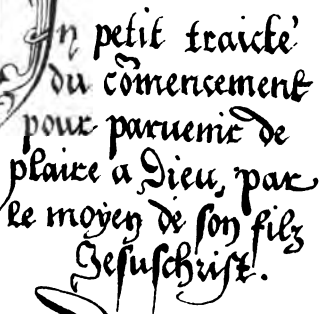 Un petit traicté
du cõmencement
pour paruenir de
plaire a Dieu, par
le moyen de son filz
Jesuschrist.